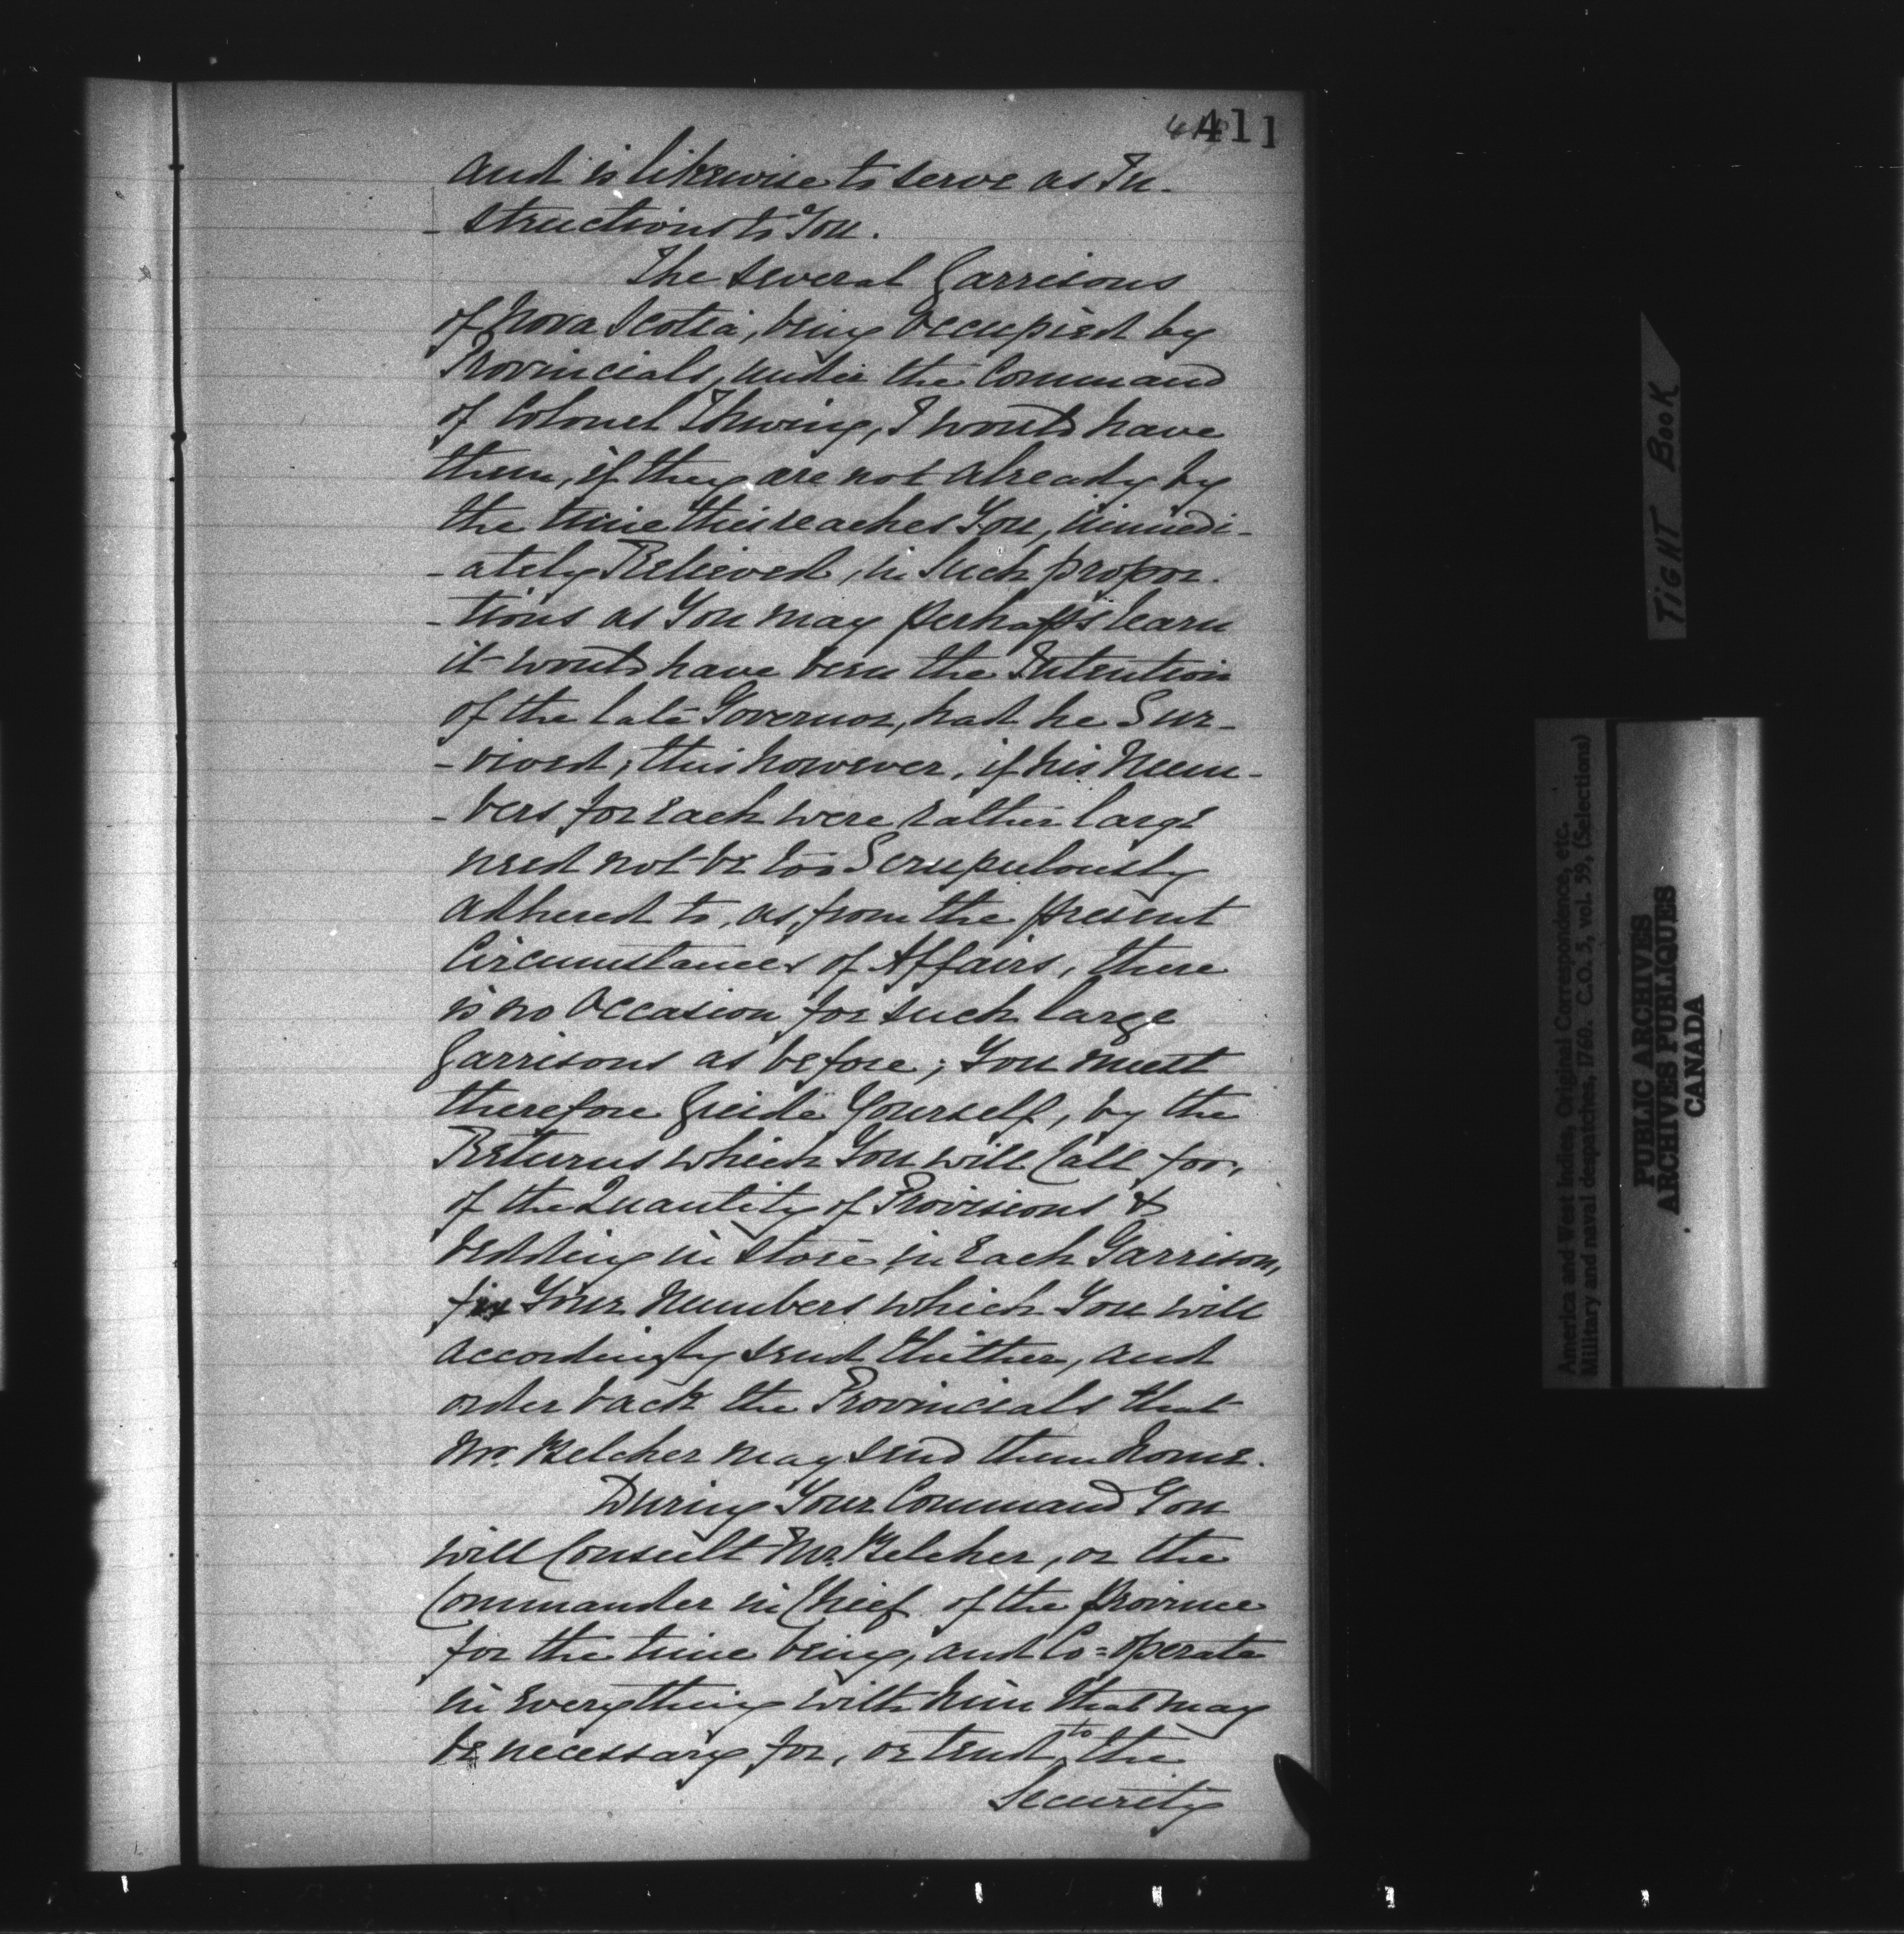 411
and is likewise to serve as In-
- structions to You.
The several Garrisons
of Nova Scotia, being Occupied by
Provincials, under the Command
of Colonel Thwing, I would have
them, if they are not already by
the time this reaches You, immedi-
- ately Relieved, in Such propor-
- tions as You may perhaps learn
it would have been the Intention
of the late Governor, had he Sur-
- vived; this however, if his Num-
- bers for each were rather large
need not be too Scrupulously
adhered to, as, from the present
Circumstances of Affairs, there
is no Occasion for such large
Garrisons as before; You must
therefore Guide Yourself, by the
Returns which You will Call for,
of the Quantity of Provisions &
bedding in Store in Each Garrison,
fix Your Numbers which You will
accordingly send thither, and
order back the Provincials that
Mr. Belcher may send them home.
During Your Command You
will Consult Mr. Belcher, or the
Commander in Chief of the Province
for the time being, and Co=operate
in Everything with him that may
be necessary for, or tend to the
Security
TIGHT BOOK
America and West Indies, Original Correspondence, etc.
Military and naval despatches, 1760. C.O. 5, vol. 59, (Selections)
PUBLIC ARCHIVES
ARCHIVES PUBLIQUES
CANADA